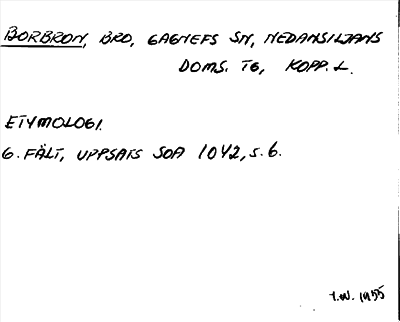 BORBRON, BRO, GAGNEFS SN, NEDANSILJANS
DOMS. TG, KOPP. L.
ETYMOLOGI.
G. FÄLT, UPPSATS SOA 1042, s. 6.
I.W. 1955